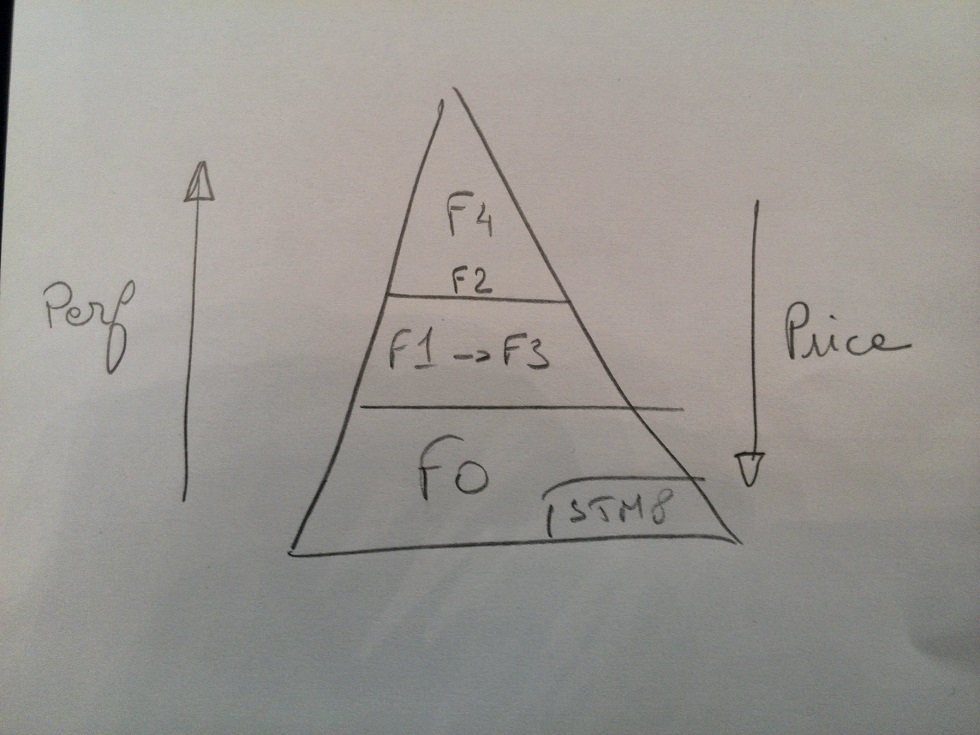 F4
F2
Perf
F1 → F3
Price
F0
STM8